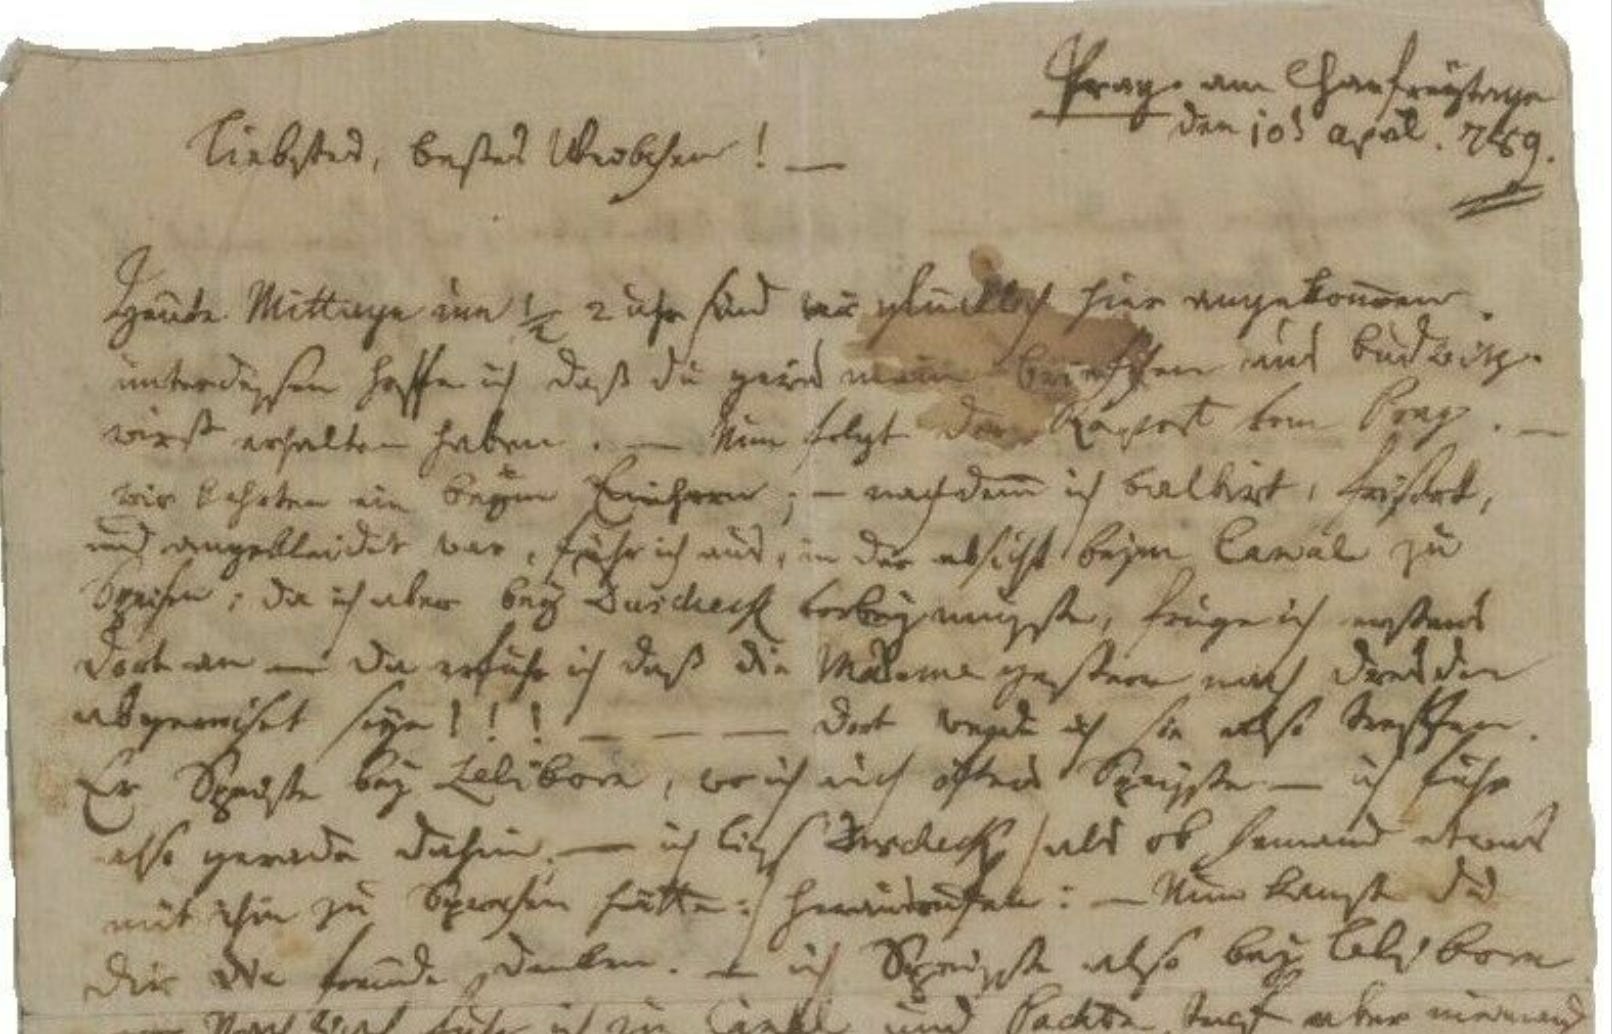 Prag. am Charfreytage
den 10t April. 789.
Liebstes, bestes Weibchen! —
Heute Mittags um ½ 2 uhr sind wir glücklich hier angekommen.
unterdessen hoffe ich daß du gewis mein briefchen aus budwitz
wirst erhalten haben. — Nun folgt der Raport vom Prag. —
wir kehrten ein beym Einhorn; — nachdemm ich balbirt, frisirt,
und angekleidet war, fuhr ich aus, in der absicht beym Canal zu
Speisen; da ich aber bey Duscheck vorbey musste, frug ich erstens
dort an — da erfuhr ich daß die Madame gestern nach dresden
abgereiset seye!!! — — — dort werde ich sie also treffen.
Er Speiste bey Leliborn, wo ich auch öfters Speisste — ich fuhr
also gerade dahin. — ich liess Duscheck /: als ob Jemand etwas
mit ihm zu Sprechen hätte :/ herausrufen: — Nun kannst du
dir die freude denken. — ich Speisste also bey Leliborn
— Nach tisch fuhr ich zu Canal und Pachta, traf aber niemand